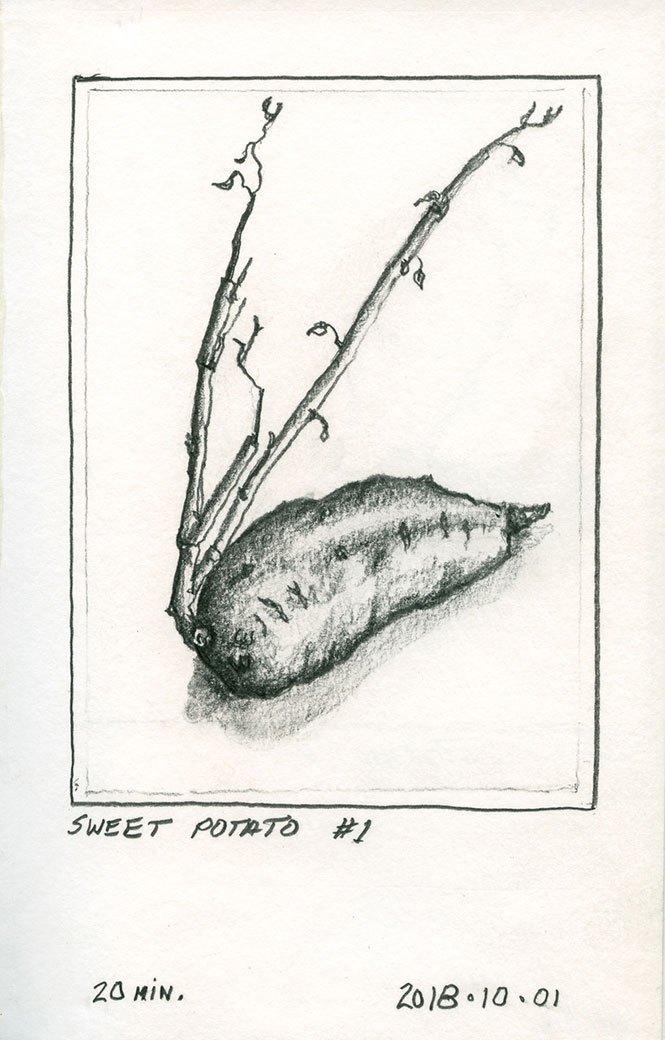 SWEET POTATO #1
20 MIN.
2018.10.01